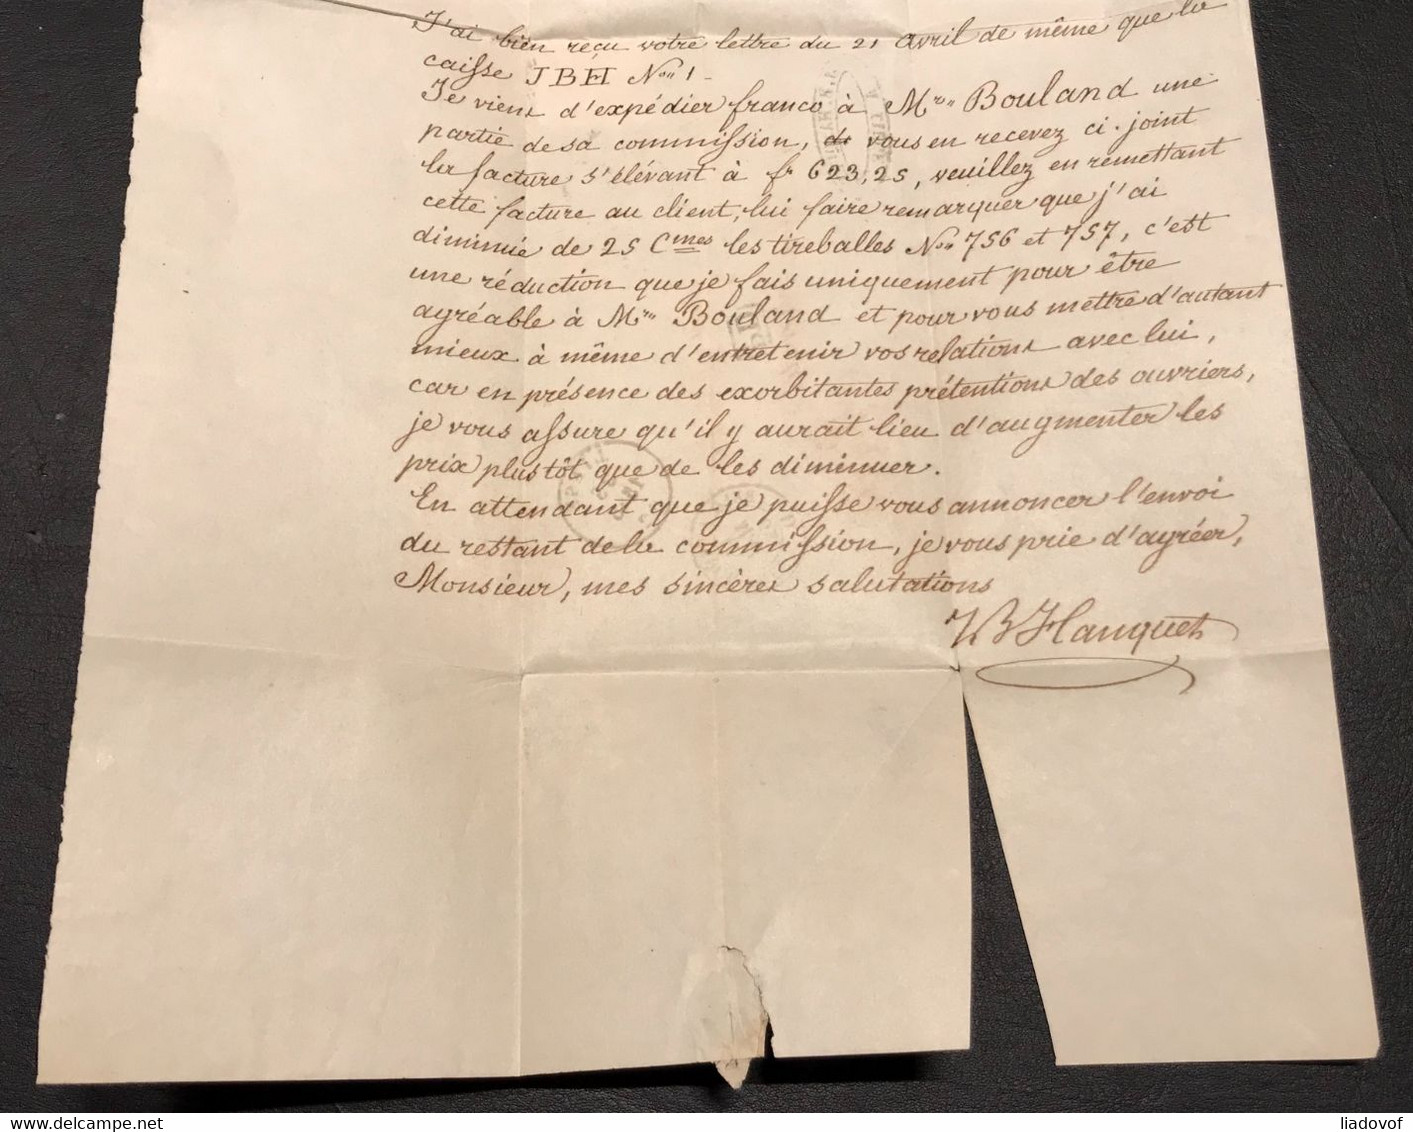 J'ai bien reçu votre lettre du 21 avril de même que la
caisse JBH Nos 1 -
Je viens d'expédier franco à Mr Bouland une
partie de sa commission, de vous en recevez ci-joint
la facture s'élevant à fr 623,25, veuillez en remettant
cette facture au client, lui faire remarquer que j'ai
diminué de 25 Cmes les tireballes Nos 756 et 757, c'est
une réduction que je fais uniquement pour être
agréable à Mr Bouland et pour vous mettre d'autant
mieux à même d'entretenir vos relations avec lui,
car en présence des exorbitantes prétentions des ouvriers,
je vous assure qu'il y aurait lieu d'augmenter les
prix plustôt que de les diminuer.
En attendant que je puisse vous annoncer l'envoi
du restant de la commission, je vous prie d'agréer,
Monsieur, mes sincères salutations
JB Hanquet
delcampe.net
liadovof